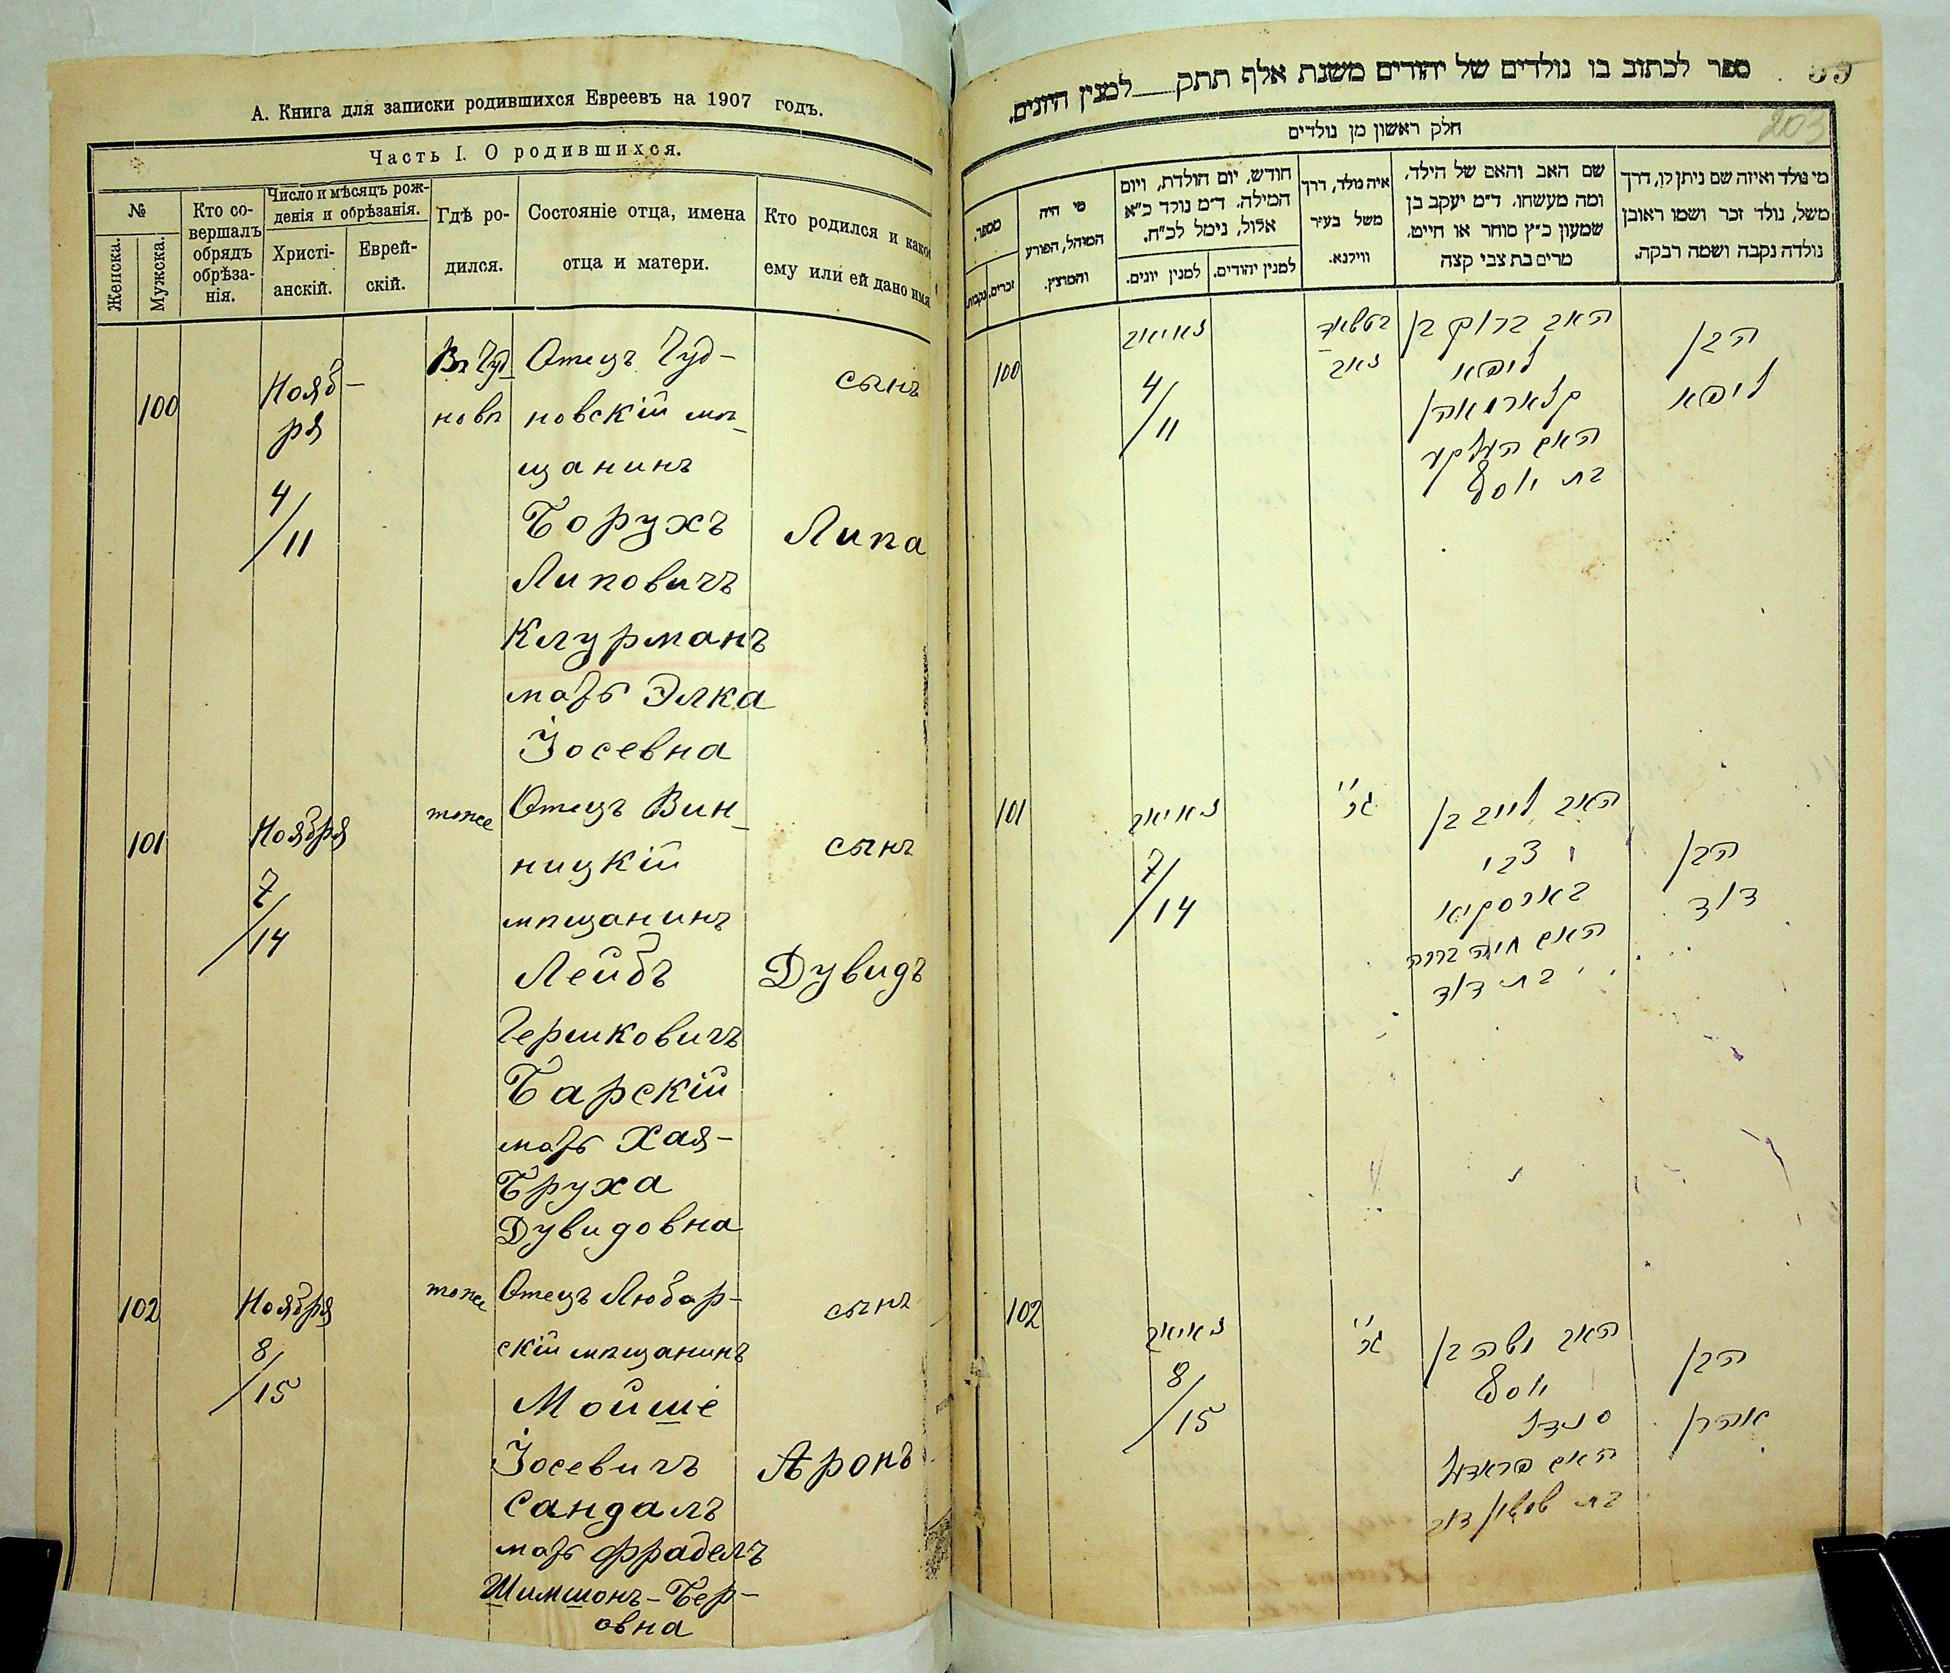 А. Книга для записки родившихся Евреевъ на 1907 годъ.
Часть I. О родившихся.
№
Женска.
Мужска.
Кто со-
вершалъ
обрядъ
обрѣза-
нія.
Число и мѣсяцъ рож-
денія и обрѣзанія.
Христі-
анскій.
Еврей-
скій.
Гдѣ ро-
дился.
Состояніе отца, имена
отца и матери.
Кто родился и како
ему или ей дано имя
100
Нояб-
ря
4/11
Въ Чуд-
новѣ
Отецъ Чуд-
новскій мѣ-
щанинъ
Борухъ
Липовичъ
Клурманъ
мать Элка
Іосевна
сынъ
Липа
101
Ноября
7/14
тоже
Отецъ Вин-
ницкій
мѣщанинъ
Лейбъ
Гершковичъ
Барскій
мать Хая-
Бруха
Дувидовна
сынъ
Дувидъ
102
Ноября
8/15
тоже
Отецъ Любар-
скій мѣщанинъ
Мойше
Іосевичъ
Сандалъ
мать Фраделъ
Шимшонъ-Бер-
овна
сынъ
Аронъ
ספר לכתוב בו נולדים של יהודים משנת אלף תתק__למנין היונים.
203
חלק ראשון מן נולדים
מי נולד ואיזה שם ניתן לו, דרך
משל, נולד זכר ושמו ראובן
נולדה נקבה ושמה רבקה.
שם האב והאם של הילד,
ומה מעשהו. ד״מ יעקב בן
שמעון כ״ץ סוחר או חייט,
מרים בת צבי קצה
איה נולד, דרך
משל בעיר
ווילנא.
חודש, יום הולדת, ויום
המילה. ד״מ נולד כ״א
אלול, נימל לכ״ח.
למנין יהודים.
למנין יונים.
מי היה
המוהל, הפורע
והמוצץ.
מספר.
זכרים.
נקבות
100
4/11
האב ברוך בן
ליפא
האם העלקע
בת יוסף
הבן
ליפא
101
7/14
האב לייב בן
צבי
בארסקיא
האם חיה ברכה
בת דוד
הבן
דוד
102
8/15
האב משה בן
יוסף
סנדל
האם פראדל
בת שמשון דוב
הבן
אהרן